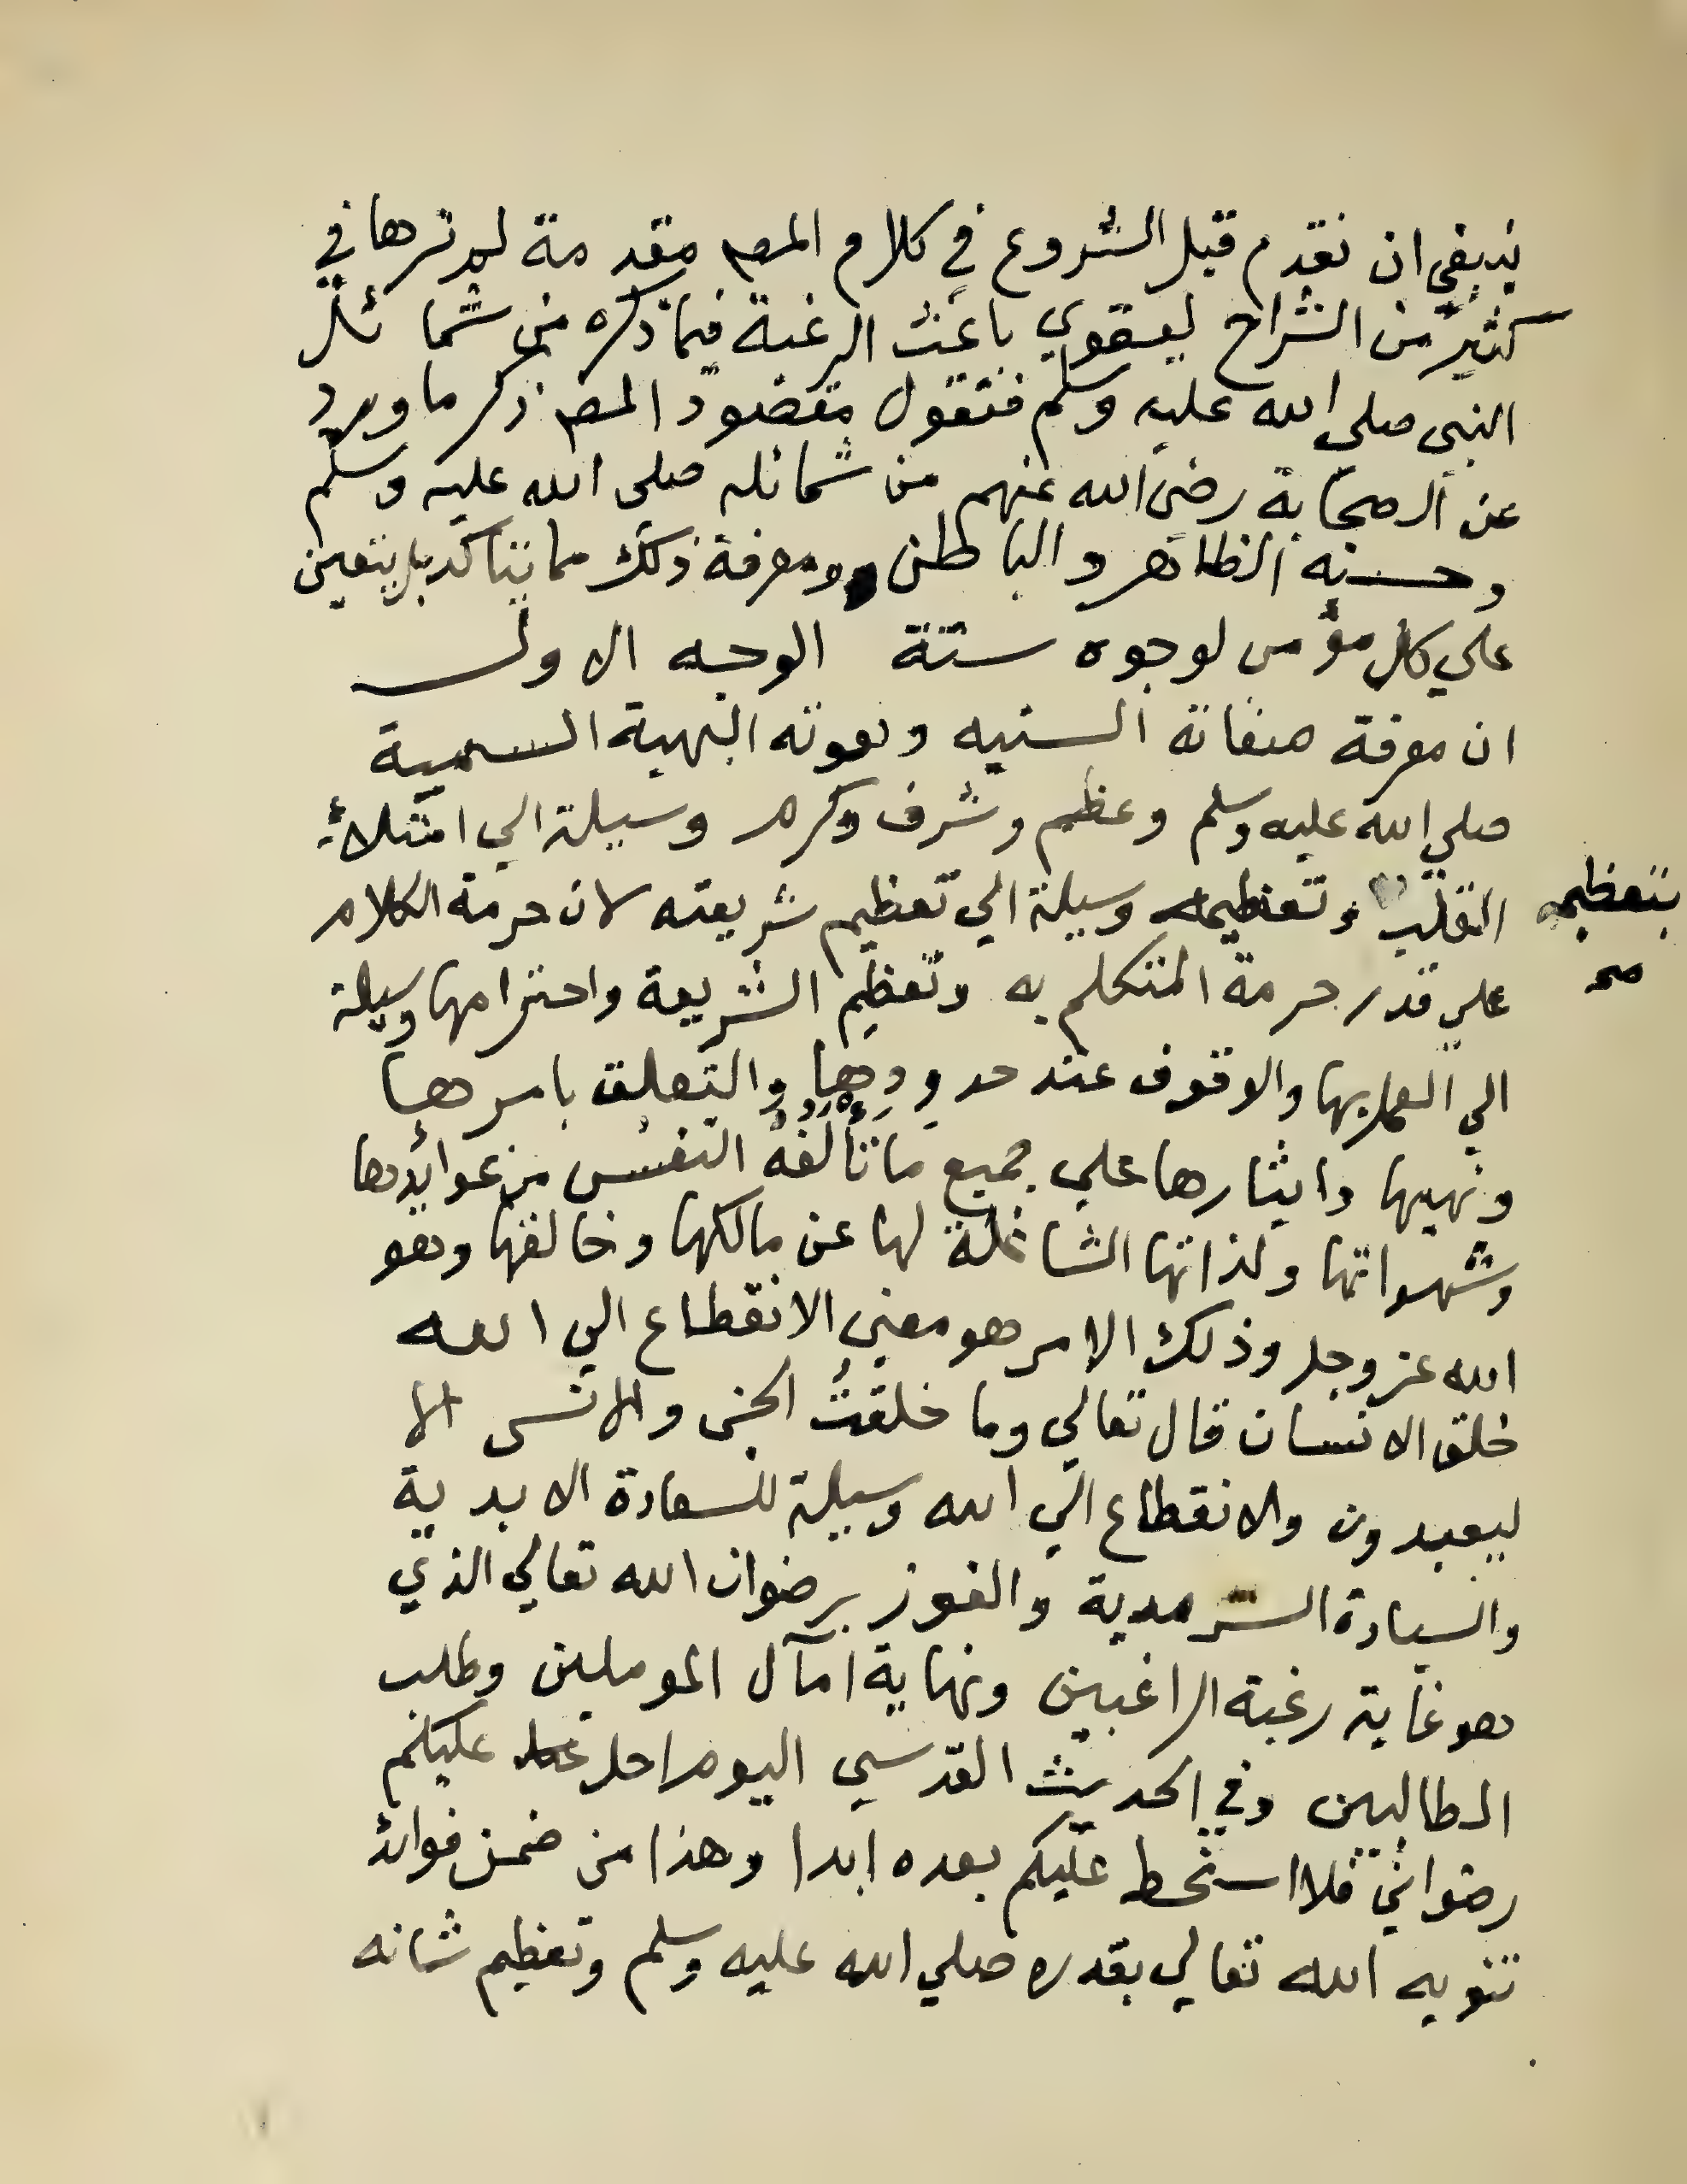 ينبغي ان نقدم قبل الشروع في كلام المصم مقدمة لم ترها في
كثير من الشراح ليقوي باعث الرغبة فيما ذكره من شمائل
النبي صلي الله عليه وسلم فنقول مقصود المصم ذكر ما ورد
عن الصحابة رضي الله عنهم من شمائله صلى الله عليه وسلم
وحسنه الظاهر والباطن ومعرفة ذلك مما يتاكد بل يتعين
علي كل مؤمن لوجوه ستة الوجه الاول
ان معرفة صفاته السنيه ونعوته البهية السمية
صلي الله عليه وسلم وعظم وشرف وكرم وسيلة الي امتلاء
القلب وتعظيمه وسيلة الي تعظيم شريعته لان حرمة الكلام
بتعظيمه
صح
علي قدر حرمة المتكلم به وتعظيم الشريعة واحترامها وسيلة
الي العمل بها والاقوف عند حدودها والتعلق بامرها
ونهيها وايثارها علي جميع ما تألَفُهُ النفسُ من عوائدها
وشهواتها ولذاتها الشاغلة لها عن مالكها وخالقها وهو
الله عز وجل وذلك الامر هو معني الانقطاع الي الله
خلق الانسان قال تعالي وما خلقتُ الجن والانس الا
ليعبدون والانقطاع الي الله وسيلة للسعادة الابدية
والسيادة السرمدية والفوز برضوان الله تعالي الذي
هو غاية رغبة الراغبين ونهاية آمآل الموملين وطلب
الطالبين وفي الحديث القدسي اليوم احل عليكم
رضواني فلا اسخط عليكم بعده ابدا وهذا من ضمن فوائد
تنويه الله تعالي بقدره صلي الله عليه وسلم وتعظيم شانه